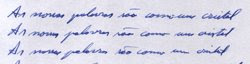 As nossas palavras são como um cristal
As nossas palavras são como um cristal
As nossas palavras são como um cristal